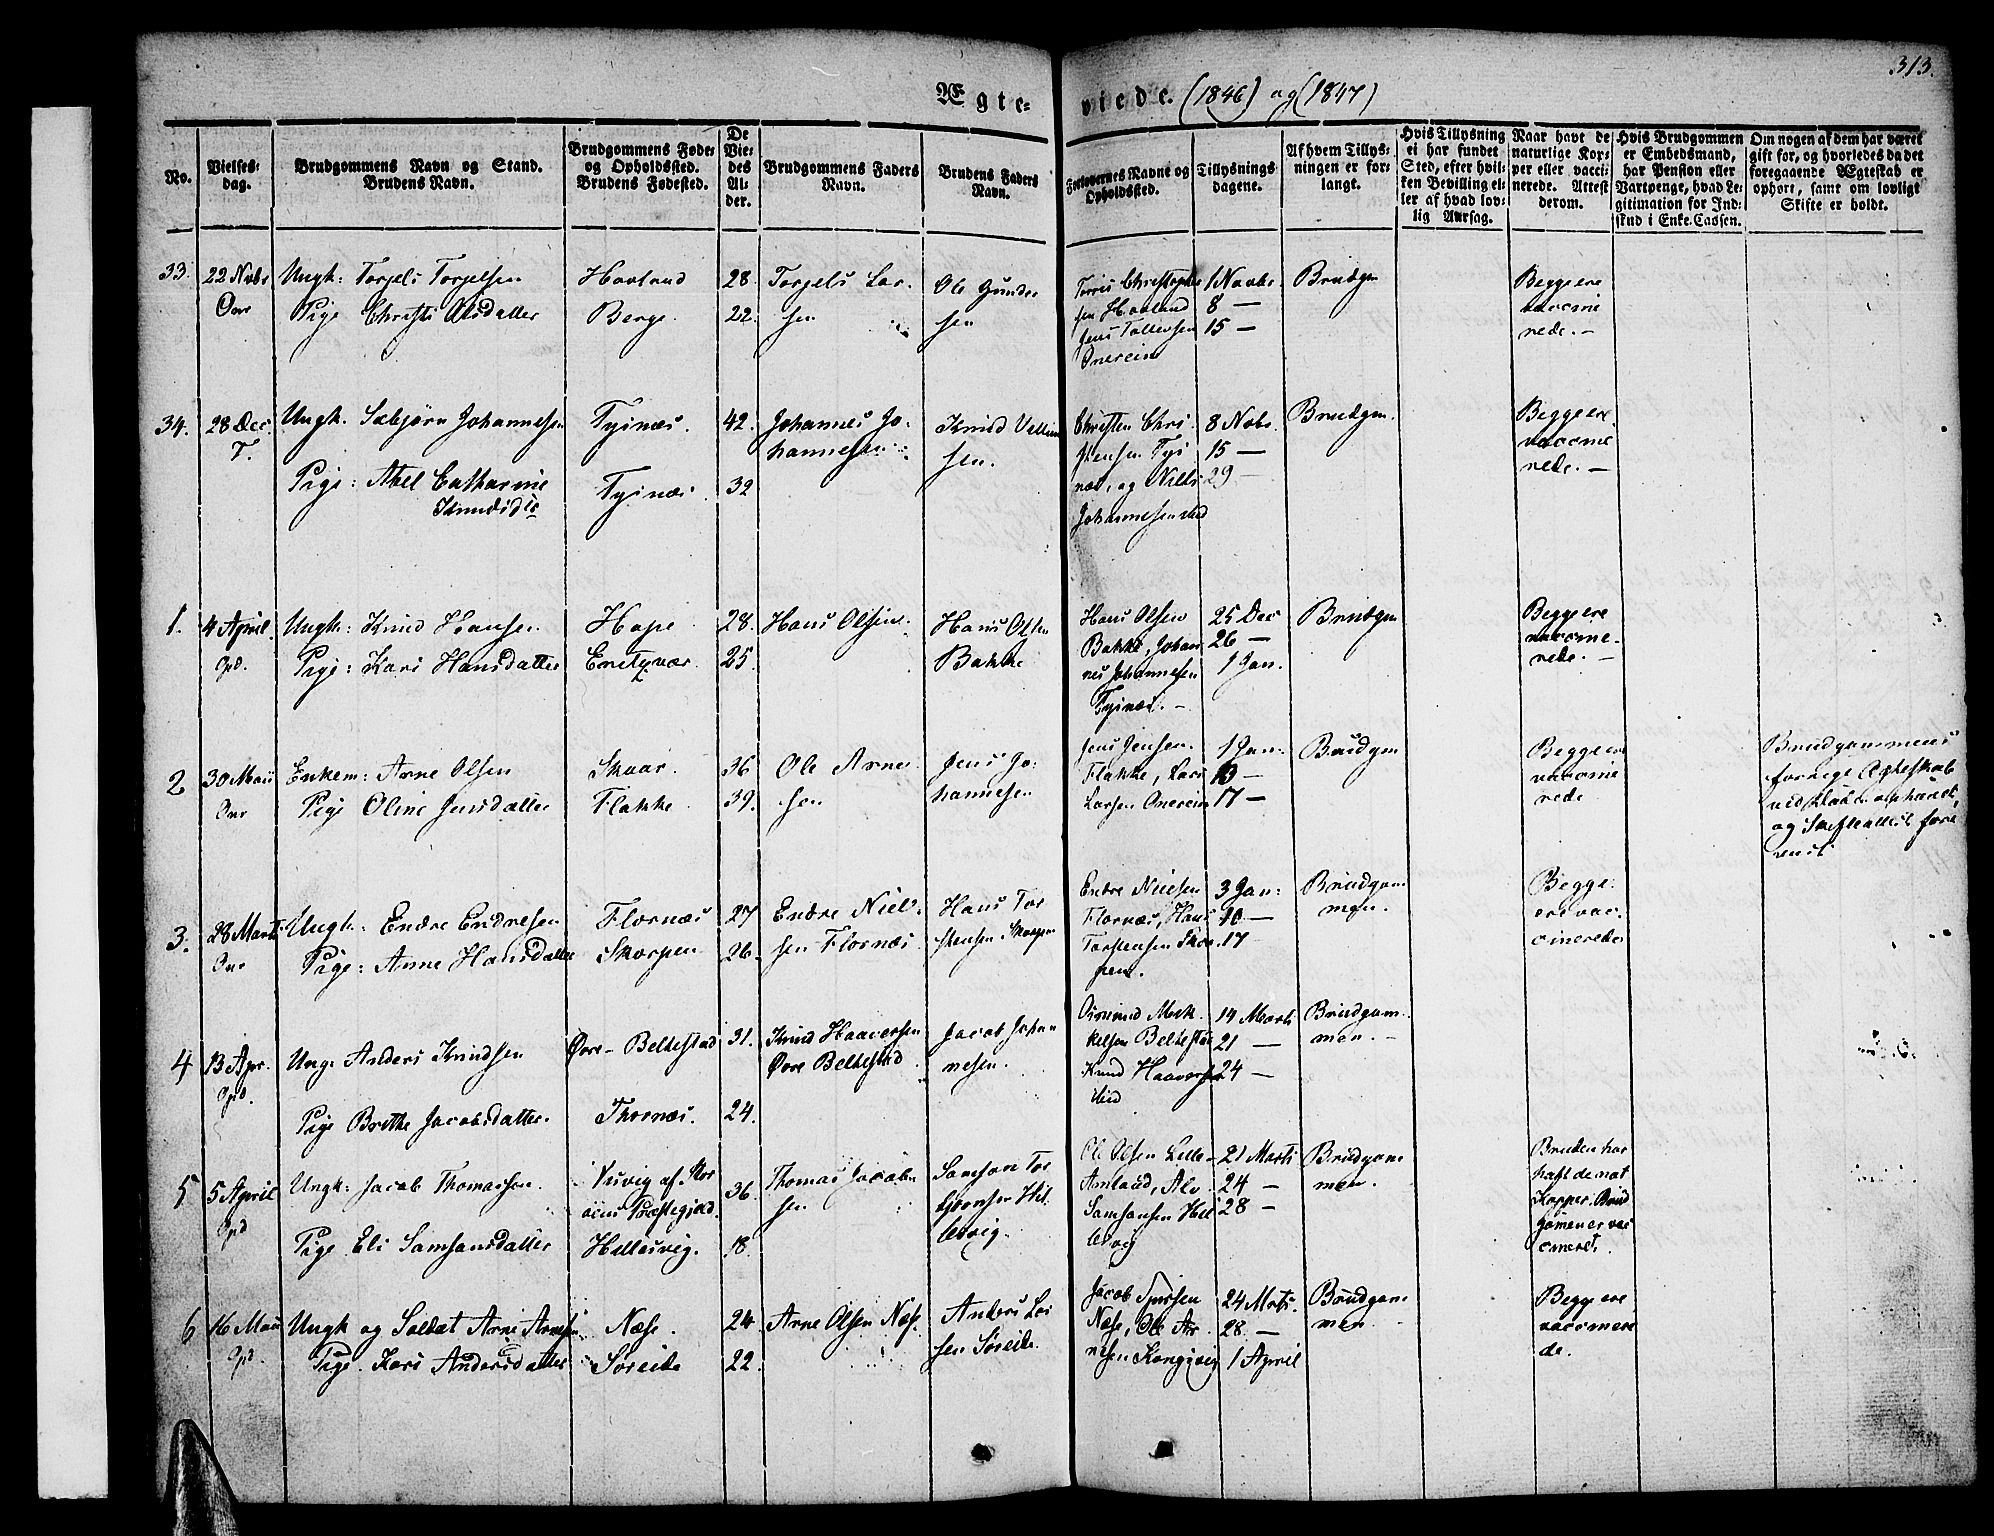 313.
Ægte-viede. (1846) og (1847)
No.
Vielses-
dag.
Brudgommens Navn og Stand.
Brudens Navn.
Brudgommens Føde-
og Opholdssted.
Brudens Fødested.
De
Vie-
des
Al-
der.
Brudgommens Faders
Navn.
Brudens Faders
Navn.
Forlovernes Navne og
Opholdssted.
Tillysnings
dagene.
Af hvem Tillys-
ningen er for-
langt.
Hvis Tillysning
ei har fundet
Sted, efter hvil-
ken Bevilling el-
ler af hvad lov-
lig Aarsag.
Naar havt de
naturlige Kop-
per eller vacci-
nerede. Attest
derom.
Hvis Brudgommen
er Embedsmand,
har Pension eller
Vartpenge, hvad Le-
gitimation for Ind-
skud i Enke-Cassen.
Om nogen af dem har været
gift før, og hvorledes da det
foregaaende Ægteskab er
ophørt, samt om lovligt
Skifte er holdt.
33.
22 Novbr
Ungk: Torjels Torjelsen
Pige Christi Olsdatter
Havland
Berge
28.
22.
Torjels Lar-
sen
Ole Gunder
sen
Torris Christophe
sen Havland
Jens Tollevsen
Onereim
1 Novbr.
8 —
15 —
Brudgm
Begge ere
vaccine
rede. —
34.
28 Dec.
T.
Ungk. Sæbjørn Johannesen
Pige: Abel Catharine
Knudsdtr
Tysnæs.
Tysnæs.
42.
32
Johannes Jo-
hannesen
Knud Vellum
sen.
Christen Chri
stensen Tys
næs, og Niels
Johannesen ibid
8 Novbr.
15 —
29 —
Brudgm.
Begge ere
vaccine
rede. —
1.
4 April.
Opd.
Ungk: Knud Hansen
Pige: Kari Hansdatter
Hope
28.
25.
Hans Olsen.
Hans Olsen
Bakke
Hans Olsen
Bakke, Johan
nes Johannesen
Tysnæs. —
25 Dec
26 —
1 Jan.
Brudgm
Begge ere
vaccine-
rede. —
2
30 Mai
Onr
Enkem: Arne Olsen
Pige Oline Jensdatter
Skaar.
Flakke.
36
39.
Ole Arne
sen
Jens Jo-
hannesen
Jens Jensen
Flakke, Lars
Larsen Onereim
1 Jan.
10 —
17 —
Brudgm
Begge ere
vaccine
rede
Brudgommens
forrige Ægteskab
ved Døden ophævet,
og Skifteattest fore
viist
3.
28 Marts
Onr
Ungk: Endre Endresen
Pige: Anne Hansdatter
Flornæs
Skorpen
27
26.
Endre Niel-
sen Flornæs.
Hans Tor
stensen Skorpen
Endre Nielsen
Flornæs, Hans
Torstensen Skor
pen.
3 Jan:
10 —
17
Brudgom
men.
Begge
ere vac-
cinerede
4
13 Apr.
Opd.
Ung: Anders Knudsen
Pige Brithe Jacobsdatter.
Øvre- Beltestad
Thornæs.
31.
24.
Knud Haaversen
Øvre Beltestad
Jacob Johan
nesen.
Merk
kelsen Beltestad
Knud Haaversen
ibid
14 Marts
21 —
24 —
Brudgom-
men. —
5
5 April
Opd
Ungk: Jacob Thomassen.
Pige Eli Samsonsdatter
Præstegjeld.
Hillesvig.
36.
18.
Thomas Jacob
sen
Samson Tor
bjørnsen Hil
lesvig.
Ole Olsen Lille
Amland, Alv
Samsonsen Hil
lesvig
21 Marts
24 —
28 —
Brudgom
men.
Bruden har
haft de nat
Kopper. Brud
gomen er vac
cineret.
6
16 Mai
Opd.
Ungk og Soldat Arne Arnesen
Pige. Kari Andersdatter
Næse.
Søreide
24
22.
Arne Olsen Næse.
Anders Lar
sen Søreide.
Jacob Sjursen
Næse, Ole Ar
nesen Kongsvig
24 Marts.
28. —
1 April
Brudgom
men.
Begge ere
vaccinere
de.